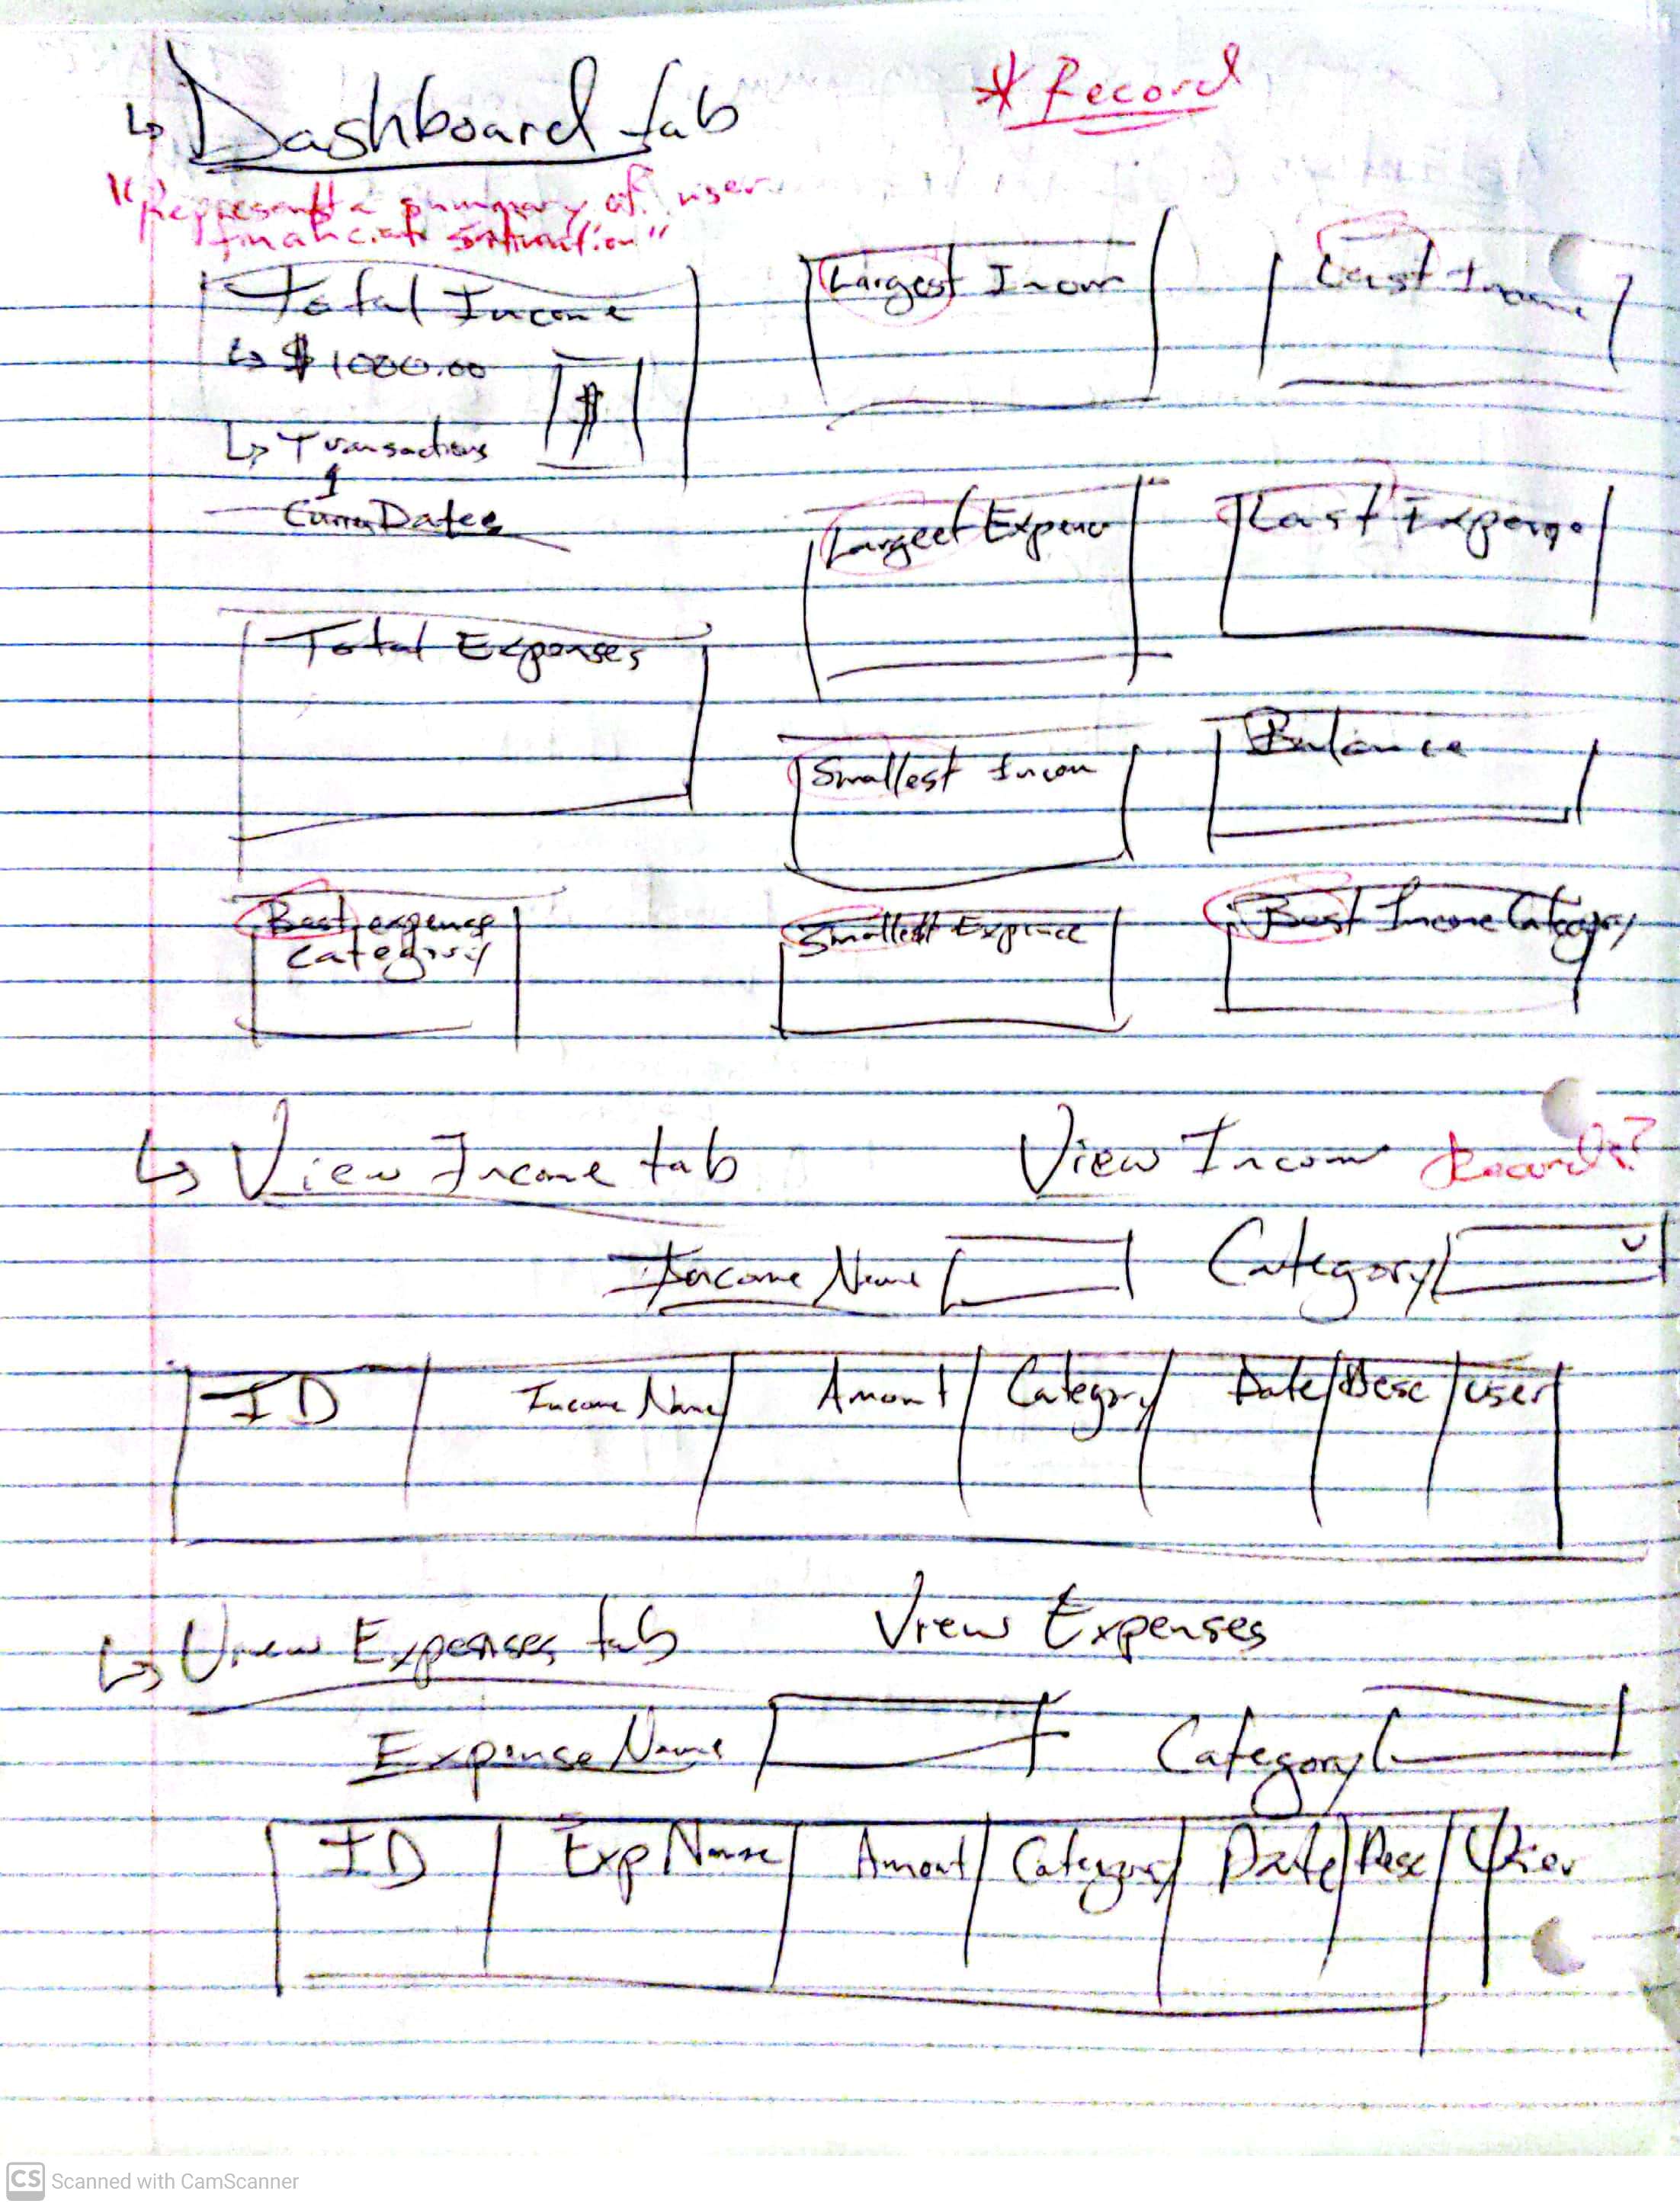 ↳ Dashboard tab
* Record
"Represent a summary of user
financial situation"
Total Income
↳ $1000.00
$
↳ Transactions
1
Dates
Largest Incom
Last Income
Largest Expense
Last Expense
Total Expenses
Smallest Incom
Balance
Best expense
category
Smallest Expense
Best Income Category
↳ View Income tab
View Income Records?
Income Name
Category
ID Income Name Amount Category Date Desc User
↳ View Expenses tab
View Expenses
Expense Name
Category
ID Exp Name Amount Category Date Desc User
CS Scanned with CamScanner